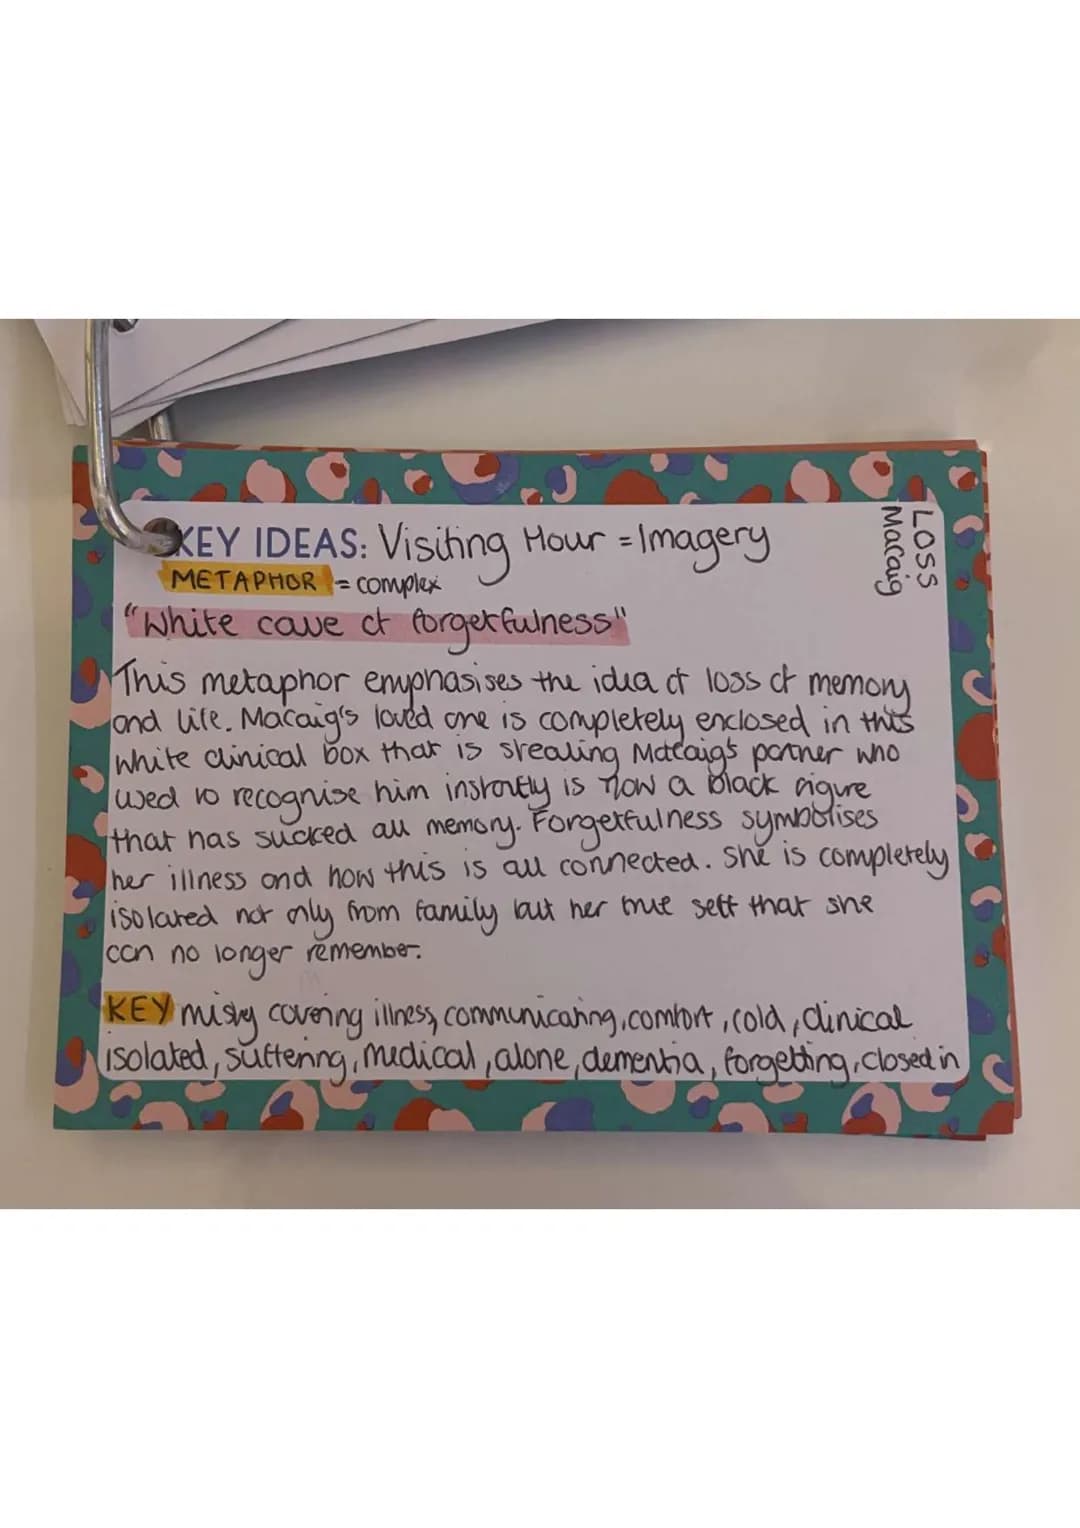 KEY IDEAS: Visiting Hour = Imagery
LOSS
Macaig
METAPHOR = complex
"White cave of forgetfulness"
This metaphor emphasises the idea of loss of memory
and life. Macaig's loved one is completely enclosed in this
white clinical box that is stealing Matcaig's partner who
used to recognise him instantly is now a black figure
that has sucked all memory. Forgetfulness symbolises
her illness and how this is all connected. She is completely
isolated not only from family but her true self that she
can no longer remember.
KEY misty covering illness, communicating, comfort, cold, clinical
isolated, suffering, medical, alone, dementia, forgetting, closed in